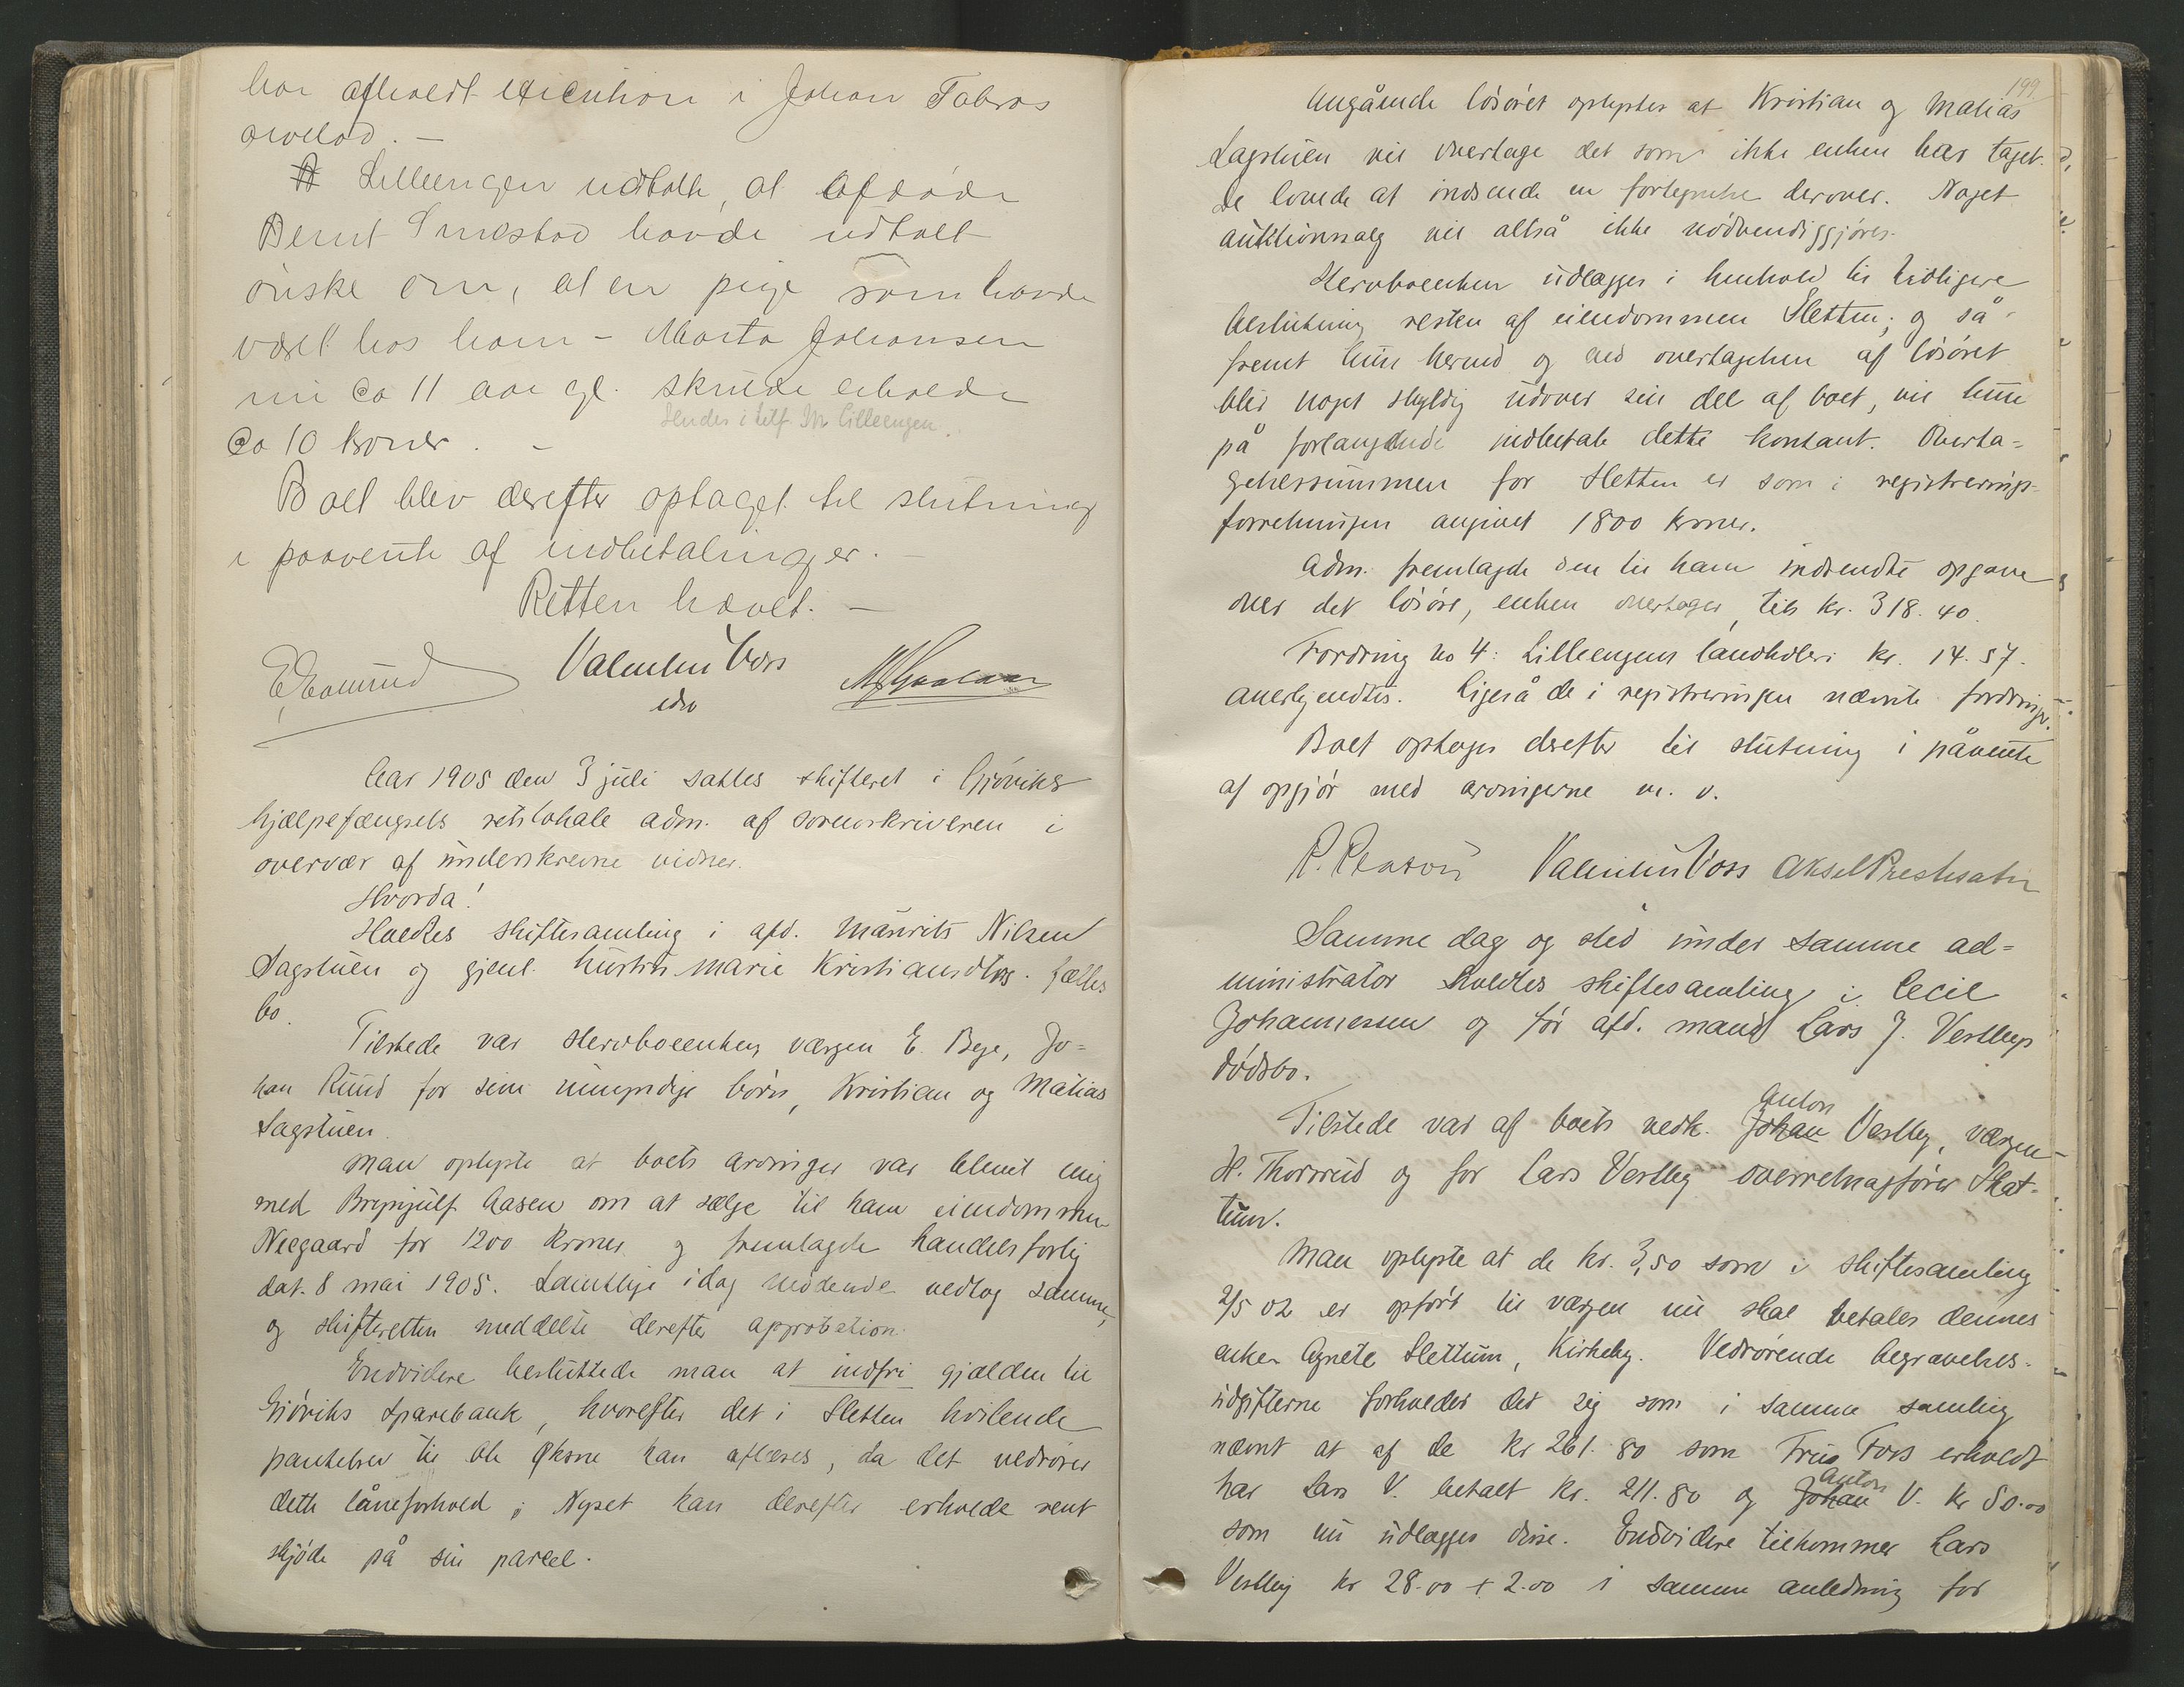 har afholdt execution i Johan Tobros
arvelod. –
Lilleengen udtalte, at afdøde
Bernt Smestad havde udtalt
ønske om, at en pige som havde
været hos ham – Marta Johansen
nu ca 11 aar gl. skulde erholde
Sendes i tilf. M Lilleengen.
ca 10 kroner. –
Boet blev derefter optaget til slutning
i paavente af indbetalinger. –
Retten hævet. –
Valentin Voss
edsv
Aar 1905 den 3 juli sattes skifteret i Gjøviks
hjælpefængsels retslokale adm. af sorenskriveren i
overvær af underskrevne vidner.
Hvorda!
Holdtes skiftesamling i afd. Maurits Nilsen
Sagstuen og gjenl. hustru Marie Kristiansdtrs. fælles
bo.
Tilstede var stervboenken, værgen E. Bye, Jo=
han Ruud for sine umyndige børn, Kristian og Matias
Sagstuen.
Man oplyste at boets arvinger var blevet enig
med Brynjulf Aasen om at sælge til ham eiendommen
Neegaard for 1200 kroner og fremlagde handelsforlig
dat. 8 mai 1905. Samtlige idag mødende vedtog samme,
og skifteretten meddelte derefter approbation.
Endvidere besluttede man at indfri gjælden til
Gjøviks sparebank, hvorefter det i Sletten hvilende
pantebrev til Ole Øksne kan aflæses, da det vedrører
dette låneforhold; Nyset kan derefter erholde rent
skjøde på sin parcel.
199
Angående løsøret oplystes at Kristian og Matias
Sagstuen vil overtage det som ikke enken har taget.
De lovede at indsende en fortegnelse derover. Noget
auktionssalg vil altså ikke nødvendiggjøres.
Stervboenken udlægges i henhold til tidligere
beslutning resten af eiendommen Sletten; og så=
fremt hun herved og ved overtagelsen af løsøret
blir noget skyldig udover sin del af boet, vil hun
på forlangende indbetale dette kontant. Overta=
gelsessummen for Sletten er som i registrerings=
forretningen angivet 1800 kroner.
Adm. fremlagde den til ham indsendte opgave
over det løsøre, enken overtager, tils kr. 318.40.
Fordring no 4: Lilleengens landhdleri kr. 14.57.
anerkjendtes. Ligeså de i registreringen nævnte fordringer.
Boet optages derefter til slutning i påvente
af opgjør med arvingerne m. v.
Valentin Voss Aksel Prestesater
Samme dag og sted under samme ad=
ministrator holdtes skiftesamling i Cecil
Johannessen og før afd. mand Lars J. Vestbys
dødsbo.
Anton
Tilstede var af boets vedk. Johan Vestby, værgen
H. Thorsrud og for Lars Vestby overretssagfører Skat=
tum.
Man oplyste at de kr. 3,50 som i skiftesamling
2/5 02 er opført til værgen nu skal betales dennes
enke Agnete Slettum, Kirkeby. Vedrørende begravelses=
udgifterne forholder det sig som i samme samling
nævnt at af de kr 261.80 som Fru Fors erholdt
Anton
har Lars V. betalt kr. 211.80 og Johan V. kr 50.00
som nu udlægges disse. Endvidere tilkommer Lars
Vestby kr 28.00 + 2.00 i samme anledning for